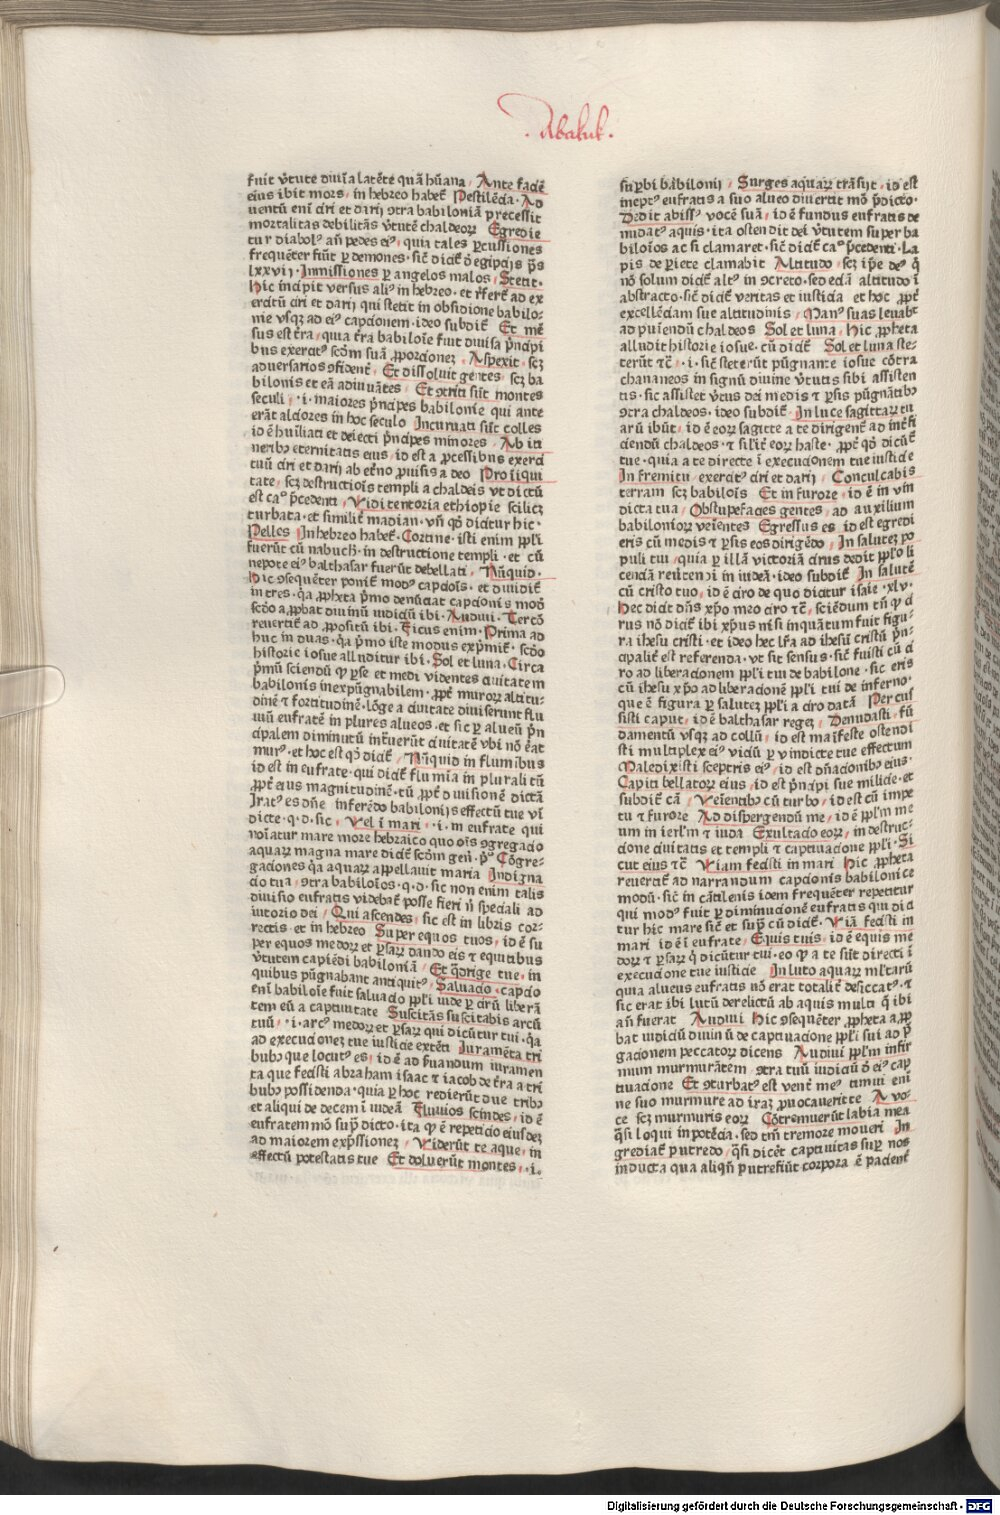 . Abakuk .
fuit v̄tute diuīa latēte quā hūana / Ante faciē
eius ibit mors / in hebreo habet᷑ Pestilēcia · Ad
uentū eni᷑ ciri et darij ꝯtra babiloniā precessit
mortalitas debilitās v̄tutē chaldeoꝝ Egredie
tur diabolꝰ añ pedes eiꝰ / quia tales ꝑcussiones
frequēter fiūt ꝑ demones · sic᷑ dicit᷑ ō egipcijs p̄s
lxxvij · Inmissiones ꝑ angelos malos / Stetit ·
Hic incipit versus aliꝰ in hebreo · et r̄fert᷑ ad ex
ercitū ciri et darij qui stetit in obsidione babilo⸗
nie vsqꝫ ad eiꝰ capcionem · ideo subdit᷑ Et mē
sus est t̄ra / quia t̄ra babiloīe fuit diuisa p̄ncipi
bus exercitꝰ scd̄m suā ꝓporcioneꝫ / Aspexit · scꝫ
aduersarios ꝯfident᷑ / Et dissoluit gentes / scꝫ ba
bilonis et eā adiuuātes / Et ꝯtriti sūt montes
seculi / · i · maiores p̄ncipes babilonie qui ante
erāt alciores in hoc seculo Incuruati sūt colles
id ē hūiliati et deiecti p̄ncipes minores / Ab iti
neribꝫ eternitatis eius / id est a ꝓcessibus exerci
tuū ciri et darij ab et̄no ꝓuisis a deo Pro iīqui
tate / scꝫ destructiois᷑ templi a chaldeis vt dictū
est caᵒ p̄cedenti / Vidi tentoria ethiopie scilicꝫ
turbata · et similit᷑ madian / vñ qd̄ dicitur hic ·
Pelles In hebreo habet᷑ · Cortine · isti enim pp̄li
fuerūt cū nabuch · in destructione templi · et cū
nepote eiꝰ balthasar fuerūt debellati / Nūquid ·
Hic ꝯsequēter ponit᷑ modꝰ capciois᷑ · et diuidit᷑
in tres · qꝛ ꝓpheta p̄mo denūciat capcionis modū
scd̄o aꝓbat diuinū iudiciū ibi · Audiui · Tercō
reuertit᷑ ad ꝓpositū ibi · Ficus enim · Prima ad
huc in duas · qꝛ p̄mo iste modus exp̄mit᷑ · scd̄o
historie iosue alluditur ibi · Sol et luna · Circa
p̄mū sciendū ꝙ ꝑse et medi videntes ciuitatem
babilonis inexpūgnabilem · ꝓpt᷑ muroꝝ altitu⸗
dinē et fortitudinē · lōge a ciuitate diuiserunt flu
uiū eufratē in plures alueos · et sic ꝑ alueū p̄n
cipalem diminutū int᷑uerūt ciuitatē vbi nō ēat
murꝰ · et hoc est qd̄ dicit᷑ / Nūquid in fluminbus
id est in eufrate · qui dicit᷑ flumia in plurali tū
ꝓpt᷑ eius magnitudinē · tū ꝓpt᷑ diuisionē dictā
Iratꝰ es dn̄e inferēdo babilonijs effectū tue vī
dicte · q · d · sic / Vel ī mari / · i · m eufrate qui
noīatur mare more hebraico quo oīs ꝯgregacio
aquaꝝ magna mare dicit᷑ scd̄m gen̄ · pᵒ · Cōgre⸗
gaciones qꝛ aquaꝝ appellauit maria Indigna
cio tua / ꝯtra babiloīos · q · d · sic non enim talis
diuisio eufratis videbat᷑ posse fieri n̄ speciali ad
iutorio dei / Qui ascendes / sic est in libris cor⸗
rectis · et in hebreo Super equos tuos / id ē su
per equos medoꝝ et ꝑsaꝝ dando eis et equitibus
v̄tutem capiēdi babiloniā / Et qd̄rige tue / in
quibus pūgnabant antiquitꝰ / Saluacio · capcio
enī babiloīe fuit saluacio pp̄li iude ꝑ cirū liberā
tem eū a captiuitate Suscitās suscitabis arcū
tuū / · i · arcꝰ medoꝝ et ꝑsaꝝ qui dicūtur tui · qꝛ
ad execucioneꝫ tue iusticie extēti Iuramēta tri
bubꝫ que locutꝰ es / id ē ad fīrmandum iuramen
ta que fecisti abraham isaac et iacob de t̄ra a tri
bubꝫ possidenda · quia ꝑ hoc redierūt due tribꝫ
et aliqui de decem ī iudeā Fluuios scindes / id ē
eufratem mō sup̄dicto · ita ꝙ ē repeticio eiusdeꝫ
ad maiorem exp̄ssioneꝫ / Viderūt te aque / in
effectū potestatis tue Et doluerūt montes / · i ·
suꝑbi babilonij / Surges aquaꝝ trāsijt · id est
ineptꝰ eufratis a suo alueo diuertit mō p̄dicto ·
Dedit abissꝰ vocē suā / id ē fundus eufratis de
nudatꝰ aquis · ita ostendit dei v̄tutem super ba
biloīos ac si clamaret · sic᷑ dicit᷑ caᵒ p̄cedenti · La
pis de ꝑiete clamabit Altitudo / scꝫ ipē deꝰ q̄
nō solum dicit᷑ altꝰ in ꝯcreto · sed eciā altitudo ī
abstracto · sic᷑ dicit᷑ veritas et iusticia et hoc ꝓpt᷑
excellēciam sue altitudinis / Manꝰ suas leuabt᷑
ad puiendū chaldeos Sol et luna / Hic ꝓpheta
alludit historie iosue · cū dicit᷑ Sol et luna ste⸗
terūt ⁊c̄ · · i · sic᷑ steterūt pūgnante iosue cōtra
chananeos in signū diuine v̄tutis sibi assisten
tis · sic assistet v̄tus dei medis ⁊ ꝑsis pūgnātibꝫ
ꝯtra chaldeos · ideo subdit᷑ / In luce sagittaꝝ tu
arū ibūt / id ē eoꝝ sagitte a te dirigent᷑ ad int᷑fi
ciendū chaldeos · ⁊ silit᷑ eoꝝ haste · ꝓpt᷑ qd̄ dicūt᷑
tue · quia a te directe ī execucionem tue iusticie
In fremitu / exercitꝰ ciri et darij / Conculcabis
terram scꝫ babilois᷑ Et in furore / id ē in vin
dicta tua / Obstupefacies gentes / ad auxilium
babilonioꝝ veīentes Egressus es id est egredi
eris cū medis ⁊ ꝑsis eos dirigēdo / In saluteꝫ po
puli tui / quia ꝑ illā victoriā cirus dedit pp̄lo li
cenciā reuītendi in iudeā · ideo subdit᷑ In salutē
cū cristo tuo / id ē ciro de quo dicitur isaie · xlv ·
Hec dicit dn̄s xp̄o meo ciro ⁊c̄ / sciēdum tn̄ ꝙ ci
rus nō dicit᷑ ibi xp̄us nisi inquātum fuit figu⸗
ra ihesu cristi · et ideo hec lr̄a ad ihesū cristū p̄n⸗
cipalit᷑ est referenda · vt sit sensus · sic᷑ fuisti cū ci
ro ad liberacionem pp̄li tui de babilone · sic eris
cū ihesu xp̄o ad liberacionē pp̄li tui de inferno ·
que ē figura ꝑ saluteꝫ pp̄li a ciro datā Percus
sisti caput / id ē balthasar regeꝫ / Denudasti · fū
damentū vsqꝫ ad collū / id est maīfeste ostendi
sti multiplex eiꝰ viciū ꝑ vindicte tue effectum
Maledixisti sceptris eiꝰ / id est dn̄acionibꝫ eius ·
Capiti bellatoꝝ eius / id est p̄ncipi sue milicie · et
subdit᷑ cā / Veīentibꝫ cū turbo / id est cū impe
tu ⁊ furore / Ad dispergendū me / id ē pp̄lm me
um in ierl̄m ⁊ iuda Exultacio eoꝝ / in destruc⸗
cione ciuitatis et templi ⁊ captiuacione pp̄li / Si
cut eius ⁊c̄ / Viam fecisti in mari Hic ꝓpheta
reuertit᷑ ad narrandum capcionis babilonice
modū · sic᷑ in cātilenis idem frequēter repetitur
qui modꝰ fuit ꝑ diminucionē eufratis qui dici
tur hic mare sic᷑ et sup̄ cū dicit᷑ · Viā fecisti in
mari id ē ī eufrate / Equis tuis · id ē equis me
doꝝ ⁊ ꝑsaꝝ q̄ dicūtur tui · eo ꝙ a te sūt directi ī
execucione tue iusticie In luto aquaꝝ ml̄tarū
quia alueus eufratis nō erat totalit᷑ desiccatꝰ · ⁊
sic erat ibi lutū derelictū ab aquis multi q̄ ibi
añ fuerat Audiui Hic ꝯsequēter ꝓpheta aꝓ
bat iudiciū diuinū de captiuacione pp̄li sui ad p̄
gacionem peccatoꝝ dicens Audiui pp̄lm infir
mum murmurātem ꝯtra tuū iudiciū ō eiꝰ cap
tiuacione Et ꝯturbatꝰ est vent᷑ meꝰ timui enī
ne suo murmure ad iraꝫ ꝓuocauerit te A vo⸗
ce scꝫ murmuris eoꝝ Cōtremuerūt labia mea
q̄si loqui in potēcia · sed tn̄ tremore moueri In
grediat᷑ putredo / q̄si dicēt captiuitas suꝑ nos
inducta qua aliqn̄ putrefiūt corpora ē pacient᷑
Digitalisierung gefördert durch die Deutsche Forschungsgemeinschaft - DFG